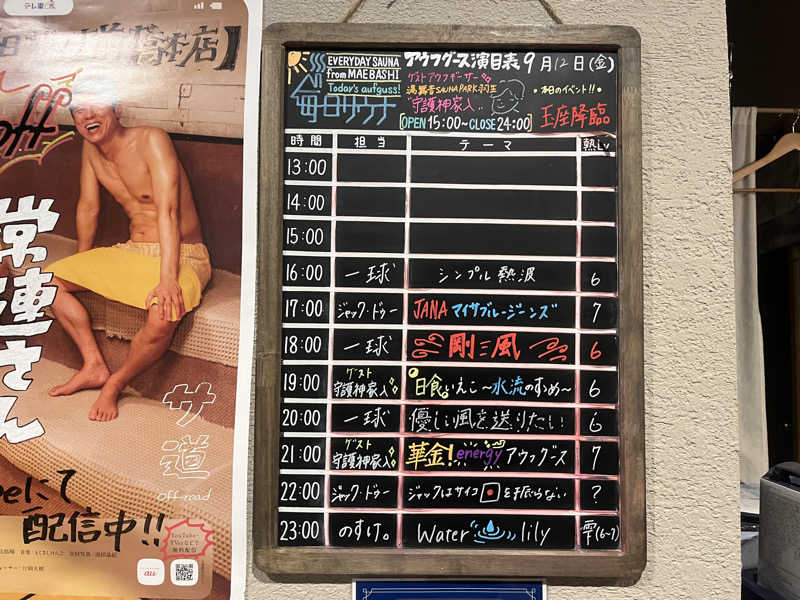 EVERYDAY SAUNA
from MAEBASHI
Today's aufguss!
毎日サウナ
アウフグース演目表 9月12日(金)
ゲストアウフギーサー
湯舞音SAUNA PARK羽生
"守護神家入"
本日のイベント!!
玉座降臨
[OPEN 15:00~CLOSE 24:00]
時間 担当 テーマ 熱Lv
13:00
14:00
15:00
16:00 一球 シンプル熱波 6
17:00 ジャック・ドゥー JANA マイサブルージーンズ 7
18:00 一球 剛風 6
19:00 ゲスト 守護神家入 日食いえこ~水流のすゝめ~ 6
20:00 一球 優しい風を送りたい 6
21:00 ゲスト 守護神家入 華金!energyアウフグース 7
22:00 ジャック・ドゥー ジャックはサイコロを振らない ?
23:00 のすけ。 Water lily 雫(6~7)
テレ東
off
常連さん
サ道
off-road
にて
配信中!!
YouTube・
TVerなどで
無料配信
au